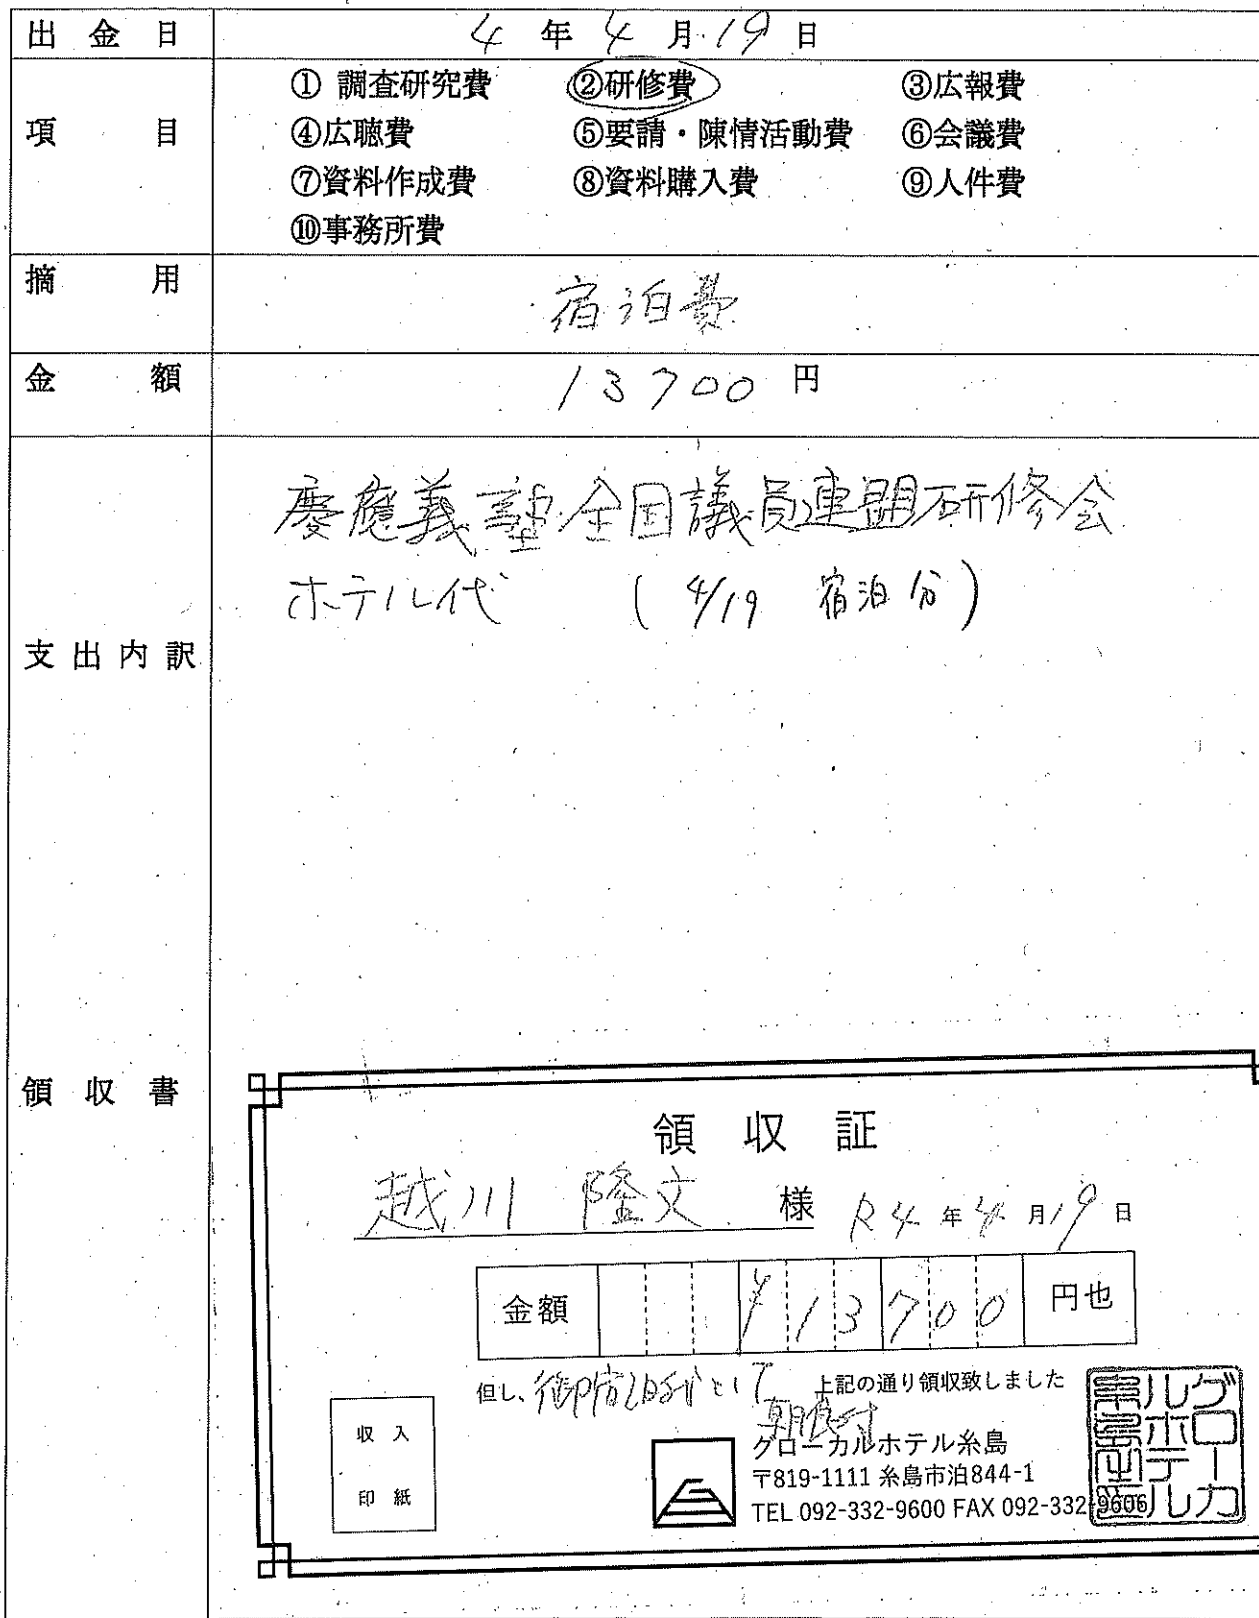 出金日 4年4月19日
項目
① 調査研究費 ②研修費 ③広報費
④広聴費 ⑤要請・陳情活動費 ⑥会議費
⑦資料作成費 ⑧資料購入費 ⑨人件費
⑩事務所費
摘用 宿泊費
金額 13700円
支出内訳
慶應義塾全国議員連盟研修会
ホテル代 (4/19 宿泊分)
領収書
領収証
越川 隆文 様 R4年4月19日
金額 ¥13700 円也
但し、御宿泊代として 上記の通り領収致しました
朝食付
収入
印紙
グローカルホテル糸島
〒819-1111 糸島市泊844-1
TEL 092-332-9600 FAX 092-332-9606